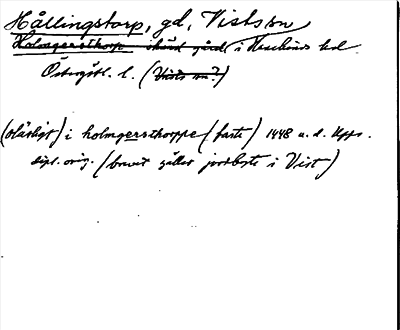 Hållingstorp, gd, Vists sn
Holmgersthorp i Hanekinds hd
Östergötl. l. (Vists sn?)
(oläsligt) i holmgersthorppe (faste) 1448 u. d. Upps.
dipl. orig. (brevet gäller jordbyte i Vist)